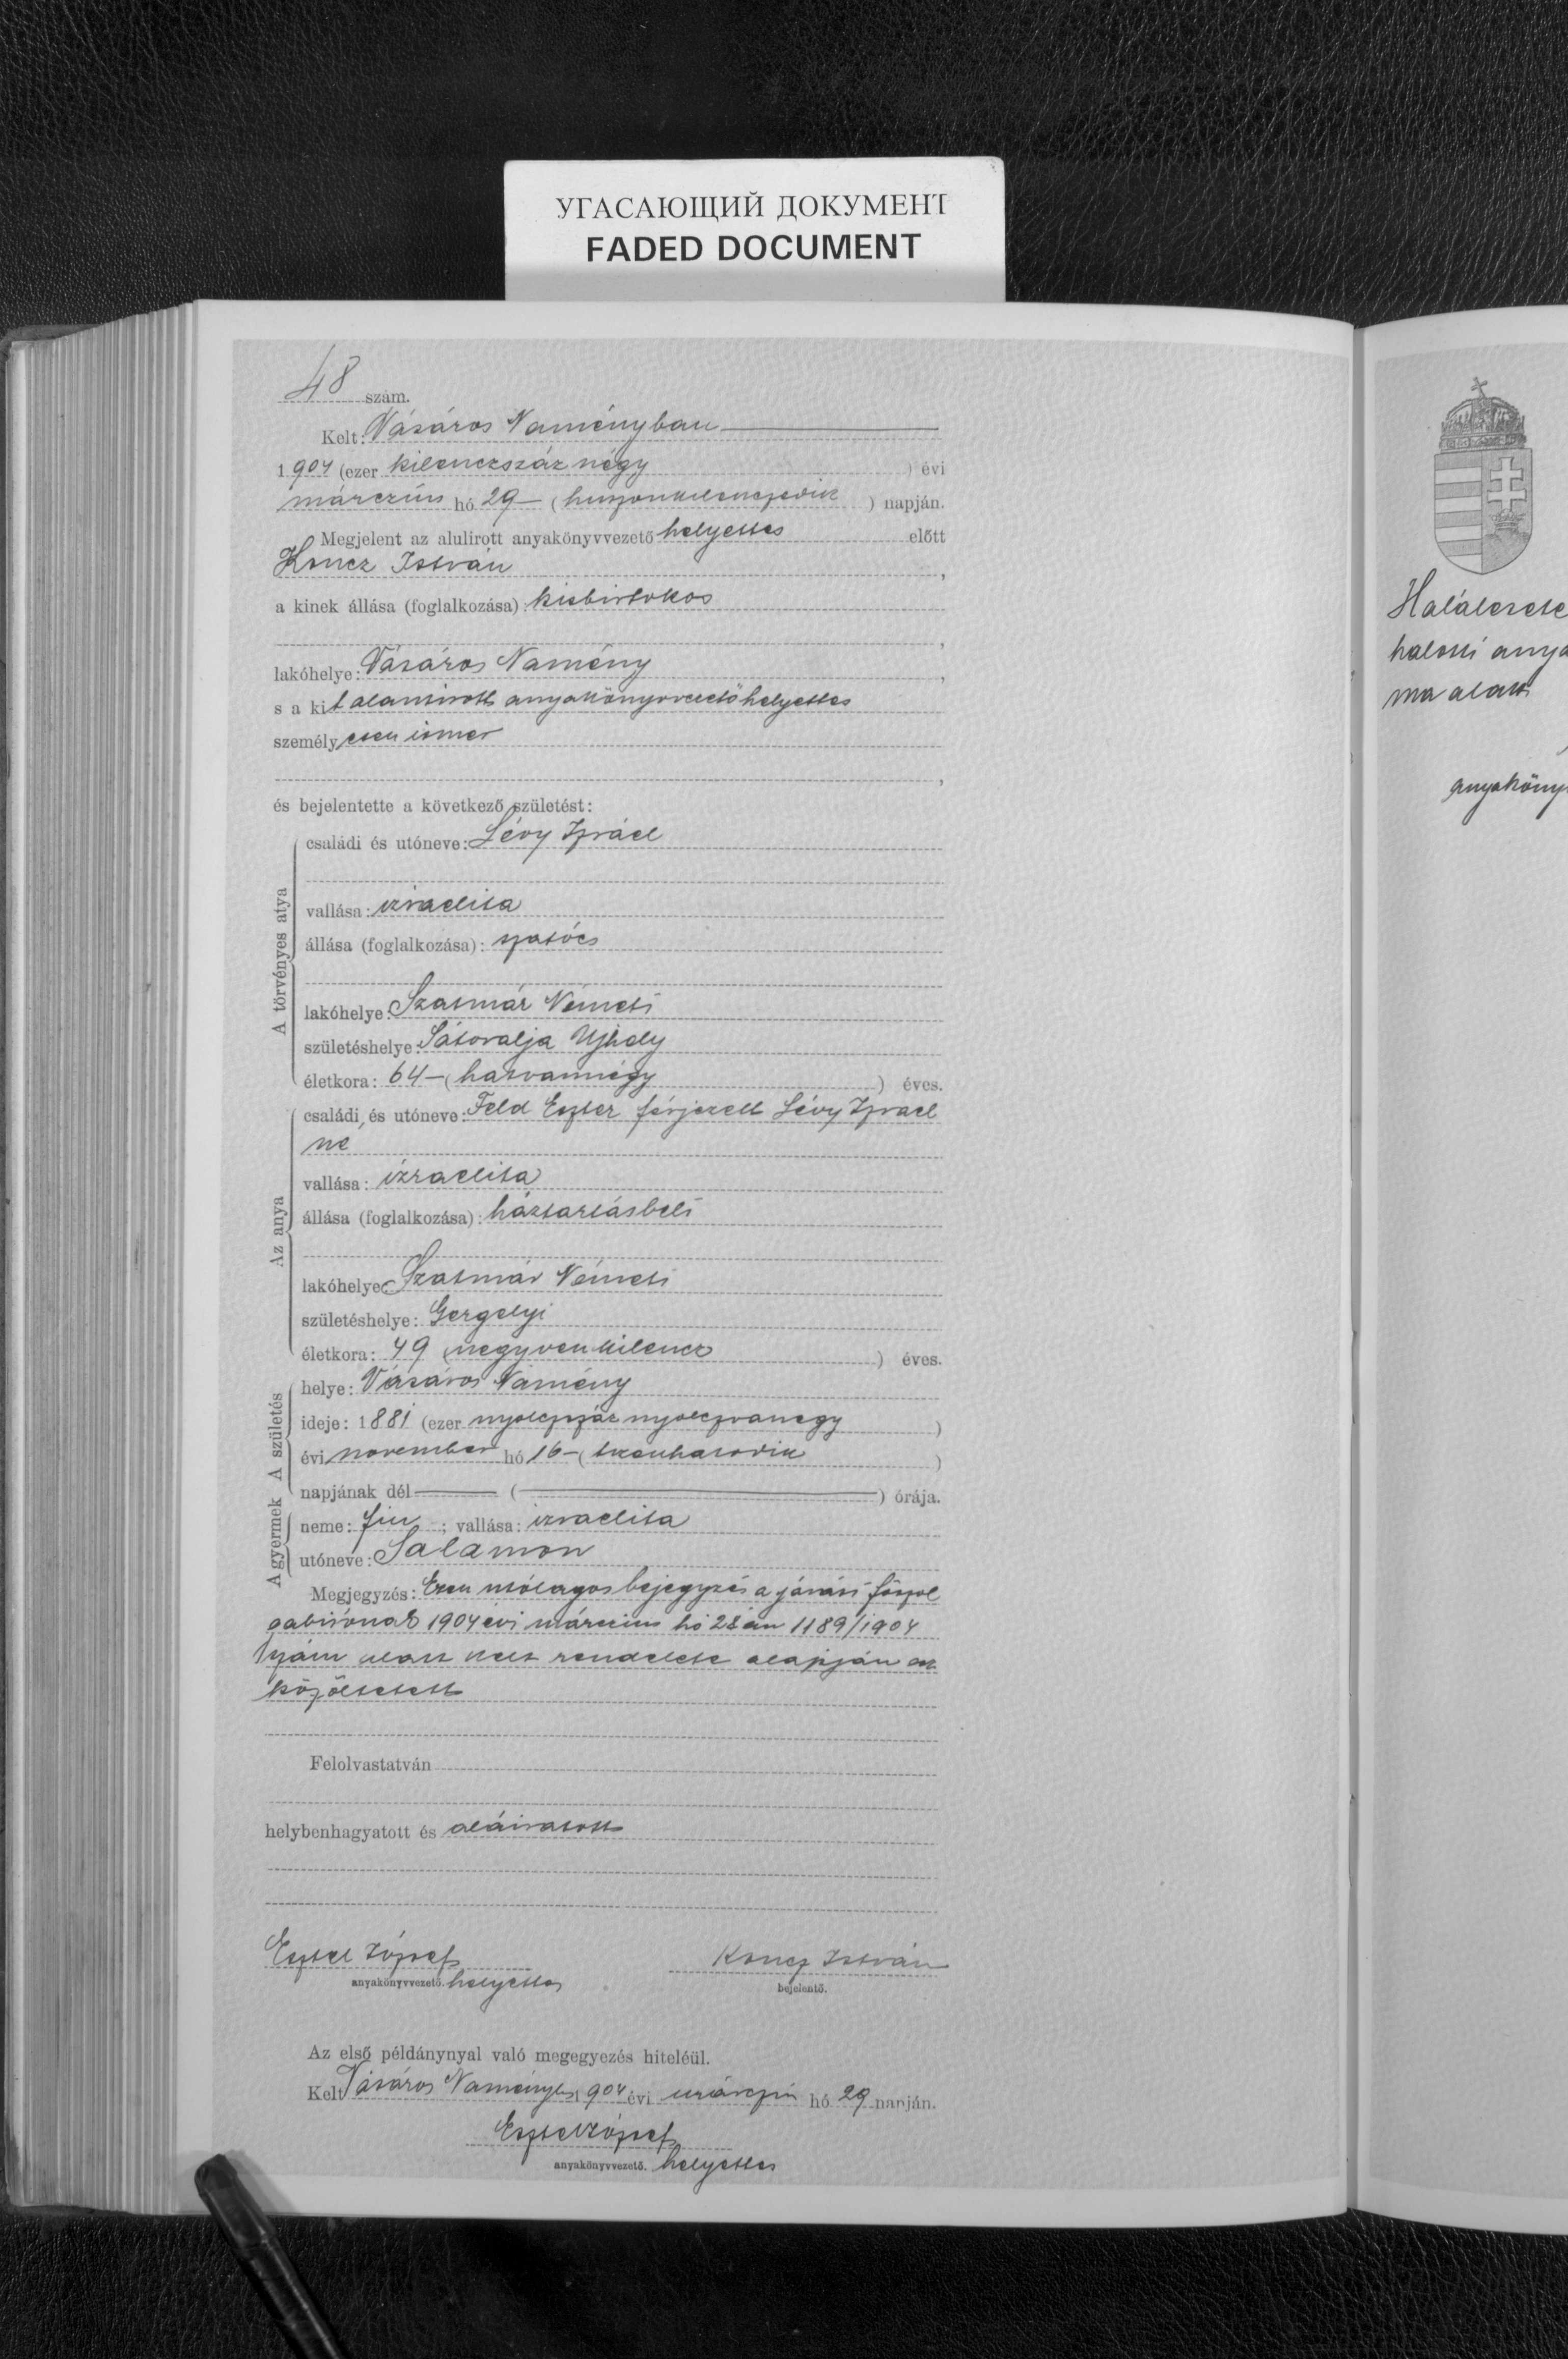 УГАСАЮЩИЙ ДОКУМЕНТ
FADED DOCUMENT
48 szám.
Kelt: Vásáros Naményban
1904 (ezer kilenczszáz négy ) évi
márczius hó 29 - (huszonkilenczedik ) napján.
Megjelent az alulirott anyakönyvvezető helyettes előtt
Koncz István ,
a kinek állása (foglalkozása): kisbirtokos
,
lakóhelye: Vásáros Namény ,
s a kit alantirott anyakönyvvezető helyettes
személyesen ismer
,
és bejelentette a következő születést:
A törvényes atya
családi és utóneve: Lévy Izráel
vallása: izraelita
állása (foglalkozása): szatócs
lakóhelye: Szatmár Németi
születéshelye: Sátoralja Ujhely
életkora: 64 - (hatvannégy ) éves.
Az anya
családi és utóneve: Feld Eszter férjezett Lévy Izrael
né
vallása: izraelita
állása (foglalkozása): háztartásbeli
lakóhelye: Szatmár Németi
születéshelye: Gergelyi
életkora: 49 (negyvenkilencz ) éves.
A születés
helye: Vásáros Namény
ideje: 1881 (ezer nyolczszáz nyolczvanegy )
évi november hó 16 - (tizenhatodik )
napjának dél ( ) órája.
A gyermek
neme: fiu ; vallása: izraelita
utóneve: Salamon
Megjegyzés: Ezen utólagos bejegyzés a járási főszol
gabirónak 1904 évi márczius hó 28 án 1189/1904
szám alatt kelt rendelete alapján
Felolvastatván
helybenhagyatott és aláiratott
Esztel József Koncz István
anyakönyvvezető. helyettes bejelentő.
Az első példánynyal való megegyezés hiteléül.
Kelt Vásáros Naményb 1904 évi márczius hó 29 napján.
Esztel József
anyakönyvvezető. helyettes
Halálesete
halotti anya
ma alatt
anyaköny